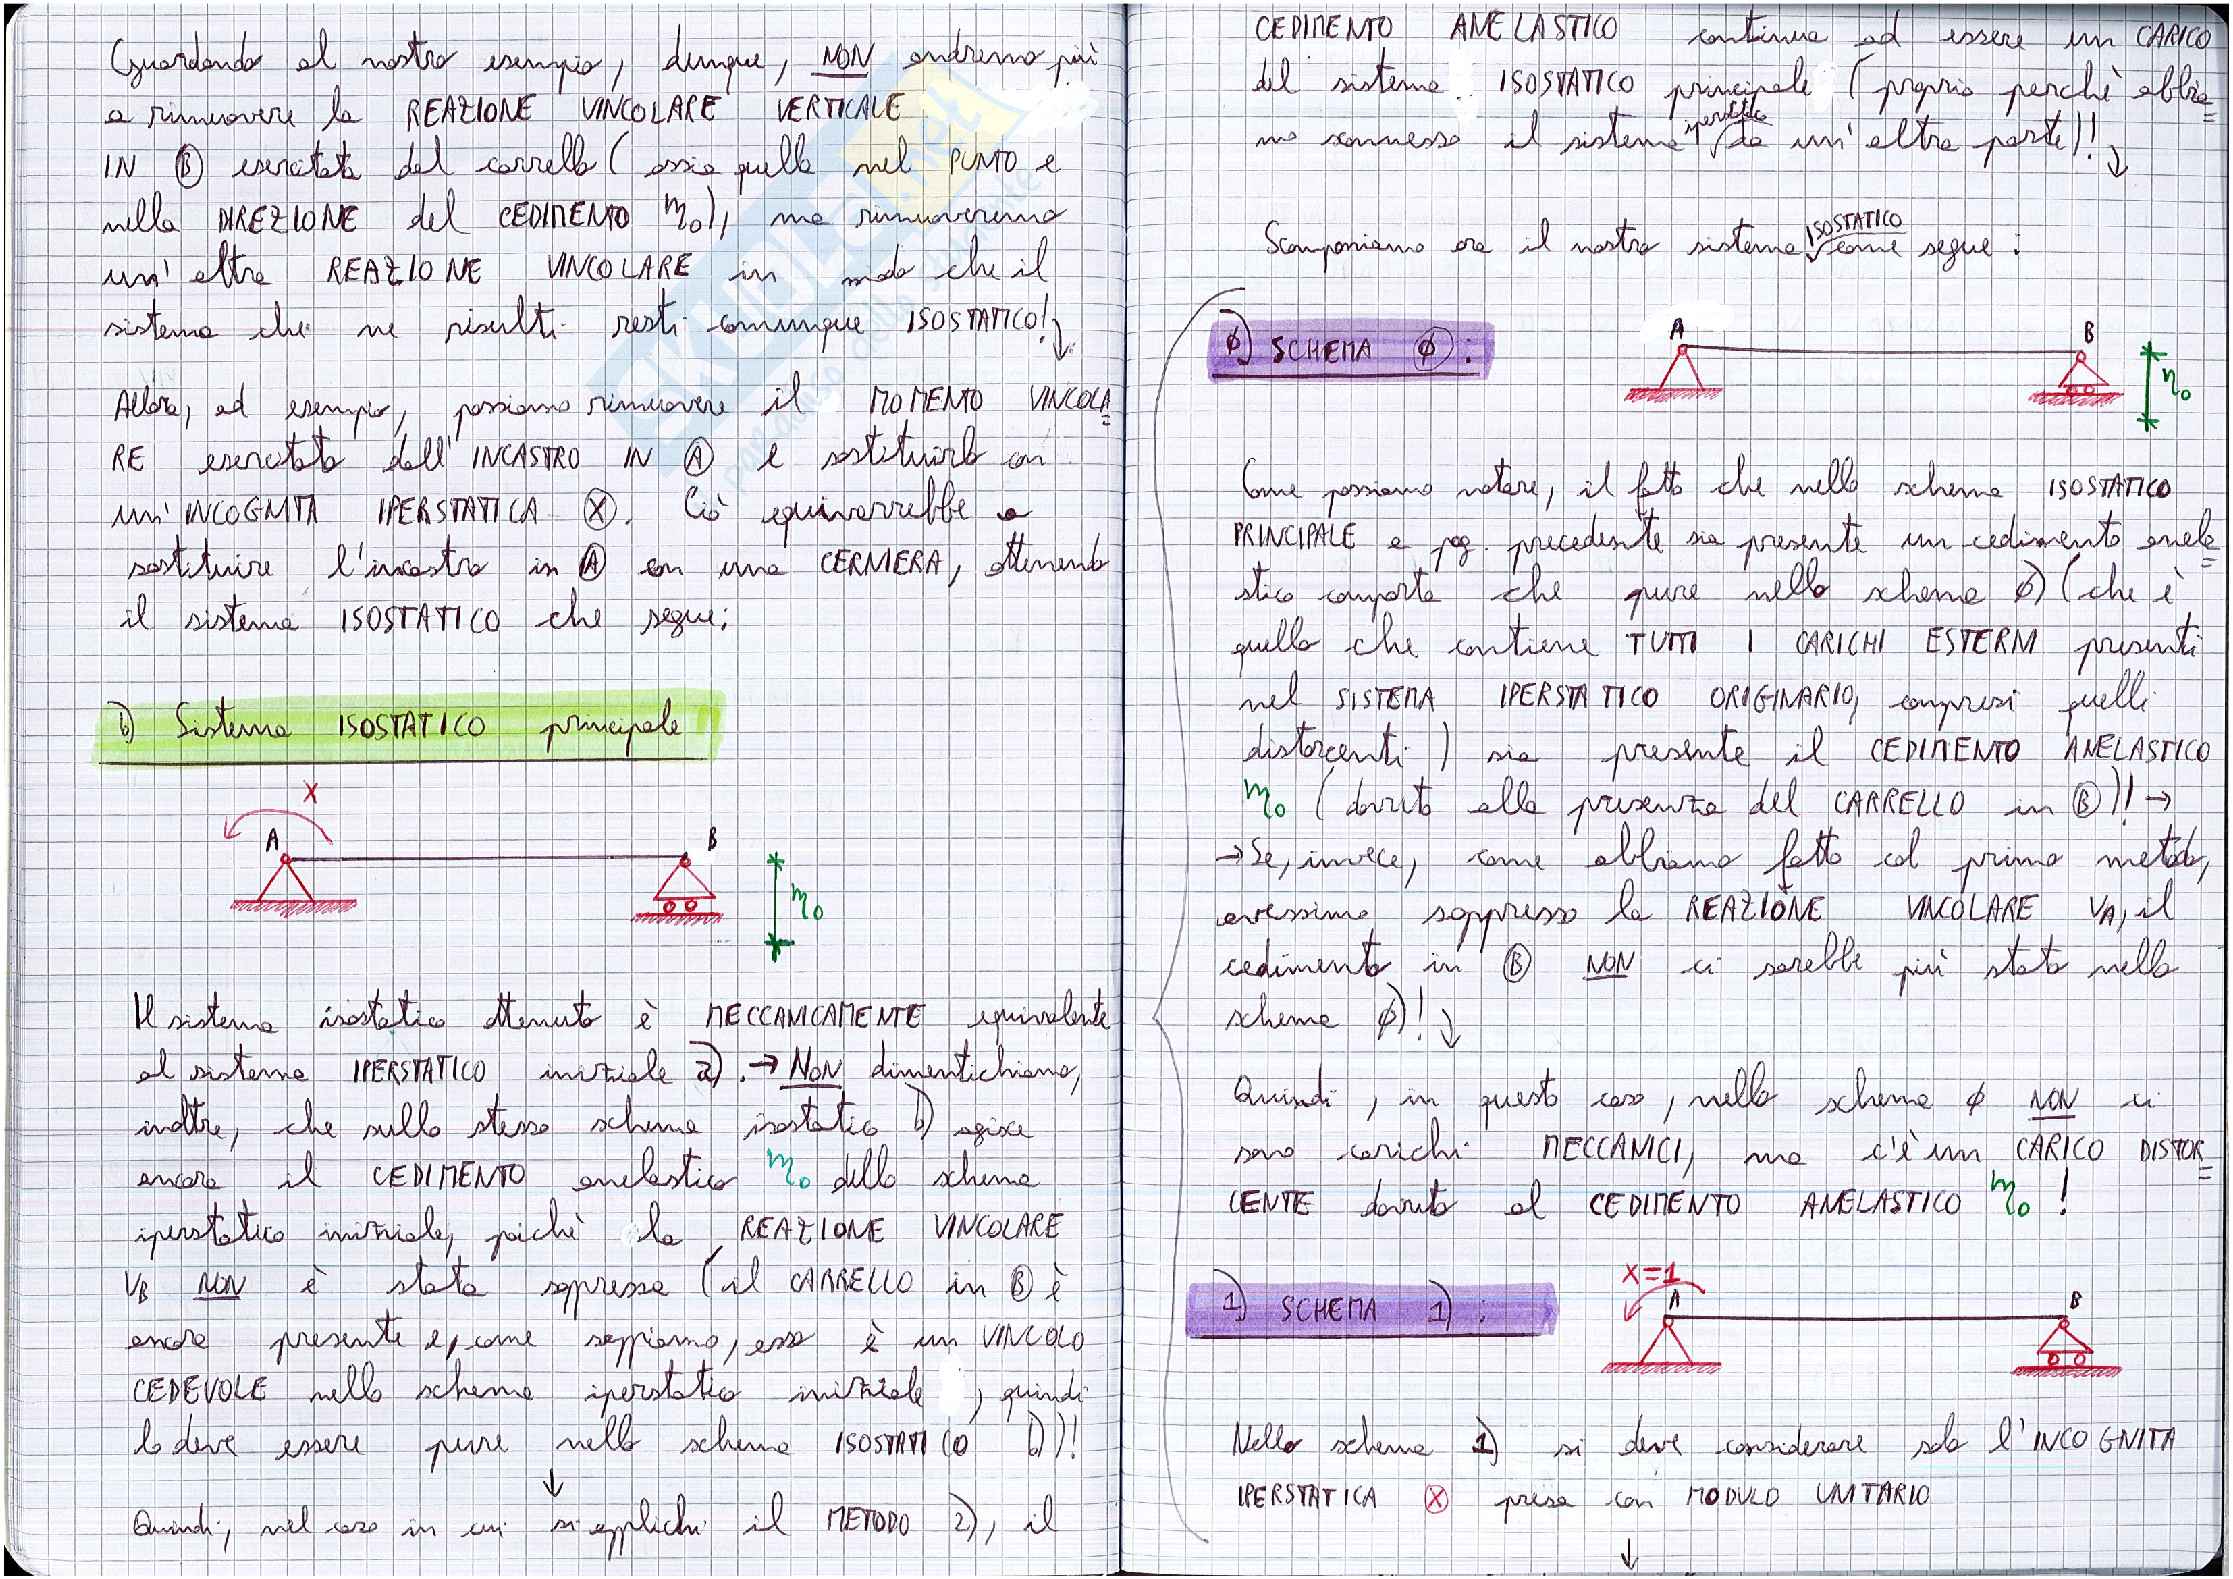 Guardando al nostro esempio, dunque, NON andremo più
a rimuovere la REAZIONE VINCOLARE VERTICALE
IN B esercitata dal carrello (ossia quella nel PUNTO e
nella DIREZIONE del CEDIMENTO η₀), ma rimuoveremo
un'altra REAZIONE VINCOLARE in modo che il
sistema che ne risulti resti comunque ISOSTATICO! ↓
Allora, ad esempio, possiamo rimuovere il MOMENTO VINCOLA=
RE esercitato dall'INCASTRO IN A e sostituirlo con
un'INCOGNITA IPERSTATICA X. Ciò equivarrebbe a
sostituire l'incastro in A con una CERNIERA, ottenendo
il sistema ISOSTATICO che segue:
b) Sistema ISOSTATICO principale
X
A B
η₀
Il sistema isostatico ottenuto è MECCANICAMENTE equivalente
al sistema IPERSTATICO iniziale a). → NON dimentichiamo,
inoltre, che sullo stesso schema isostatico b) agisce
ancora il CEDIMENTO anelastico η₀ dello schema
iperstatico iniziale, poichè la REAZIONE VINCOLARE
VB NON è stata soppressa (il CARRELLO in B è
ancora presente e, come sappiamo, esso è un VINCOLO
CEDEVOLE nello schema iperstatico iniziale, quindi
lo deve essere pure nello schema ISOSTATICO b)!
↓
Quindi, nel caso in cui si applichi il METODO 2), il
CEDIMENTO ANELASTICO continua ad essere un CARICO
del sistema ISOSTATICO principale (proprio perchè abbia=
mo sconnesso il sistema iperstatico da un'altra parte)! ↓
Scomponiamo ora il nostro sistema ISOSTATICO come segue:
φ) SCHEMA φ:
A B
η₀
Come possiamo notare, il fatto che nello schema ISOSTATICO
PRINCIPALE a pag. precedente sia presente un cedimento anela=
stico comporta che pure nello schema φ) (che è
quello che contiene TUTTI I CARICHI ESTERNI presenti
nel SISTEMA IPERSTATICO ORIGINARIO, compresi quelli
distorcenti) sia presente il CEDIMENTO ANELASTICO
η₀ (dovuto alla presenza del CARRELLO in B)! →
→ Se, invece, come abbiamo fatto col primo metodo,
avessimo soppresso la REAZIONE VINCOLARE VA, il
cedimento in B NON ci sarebbe più stato nello
schema φ)! ↓
Quindi, in questo caso, nello schema φ NON ci
sono carichi MECCANICI, ma c'è un CARICO DISTOR=
CENTE dovuto al CEDIMENTO ANELASTICO η₀!
1) SCHEMA 1):
X=1
A B
Nello schema 1) si deve considerare solo l'INCOGNITA
IPERSTATICA X presa con MODULO UNITARIO
↓